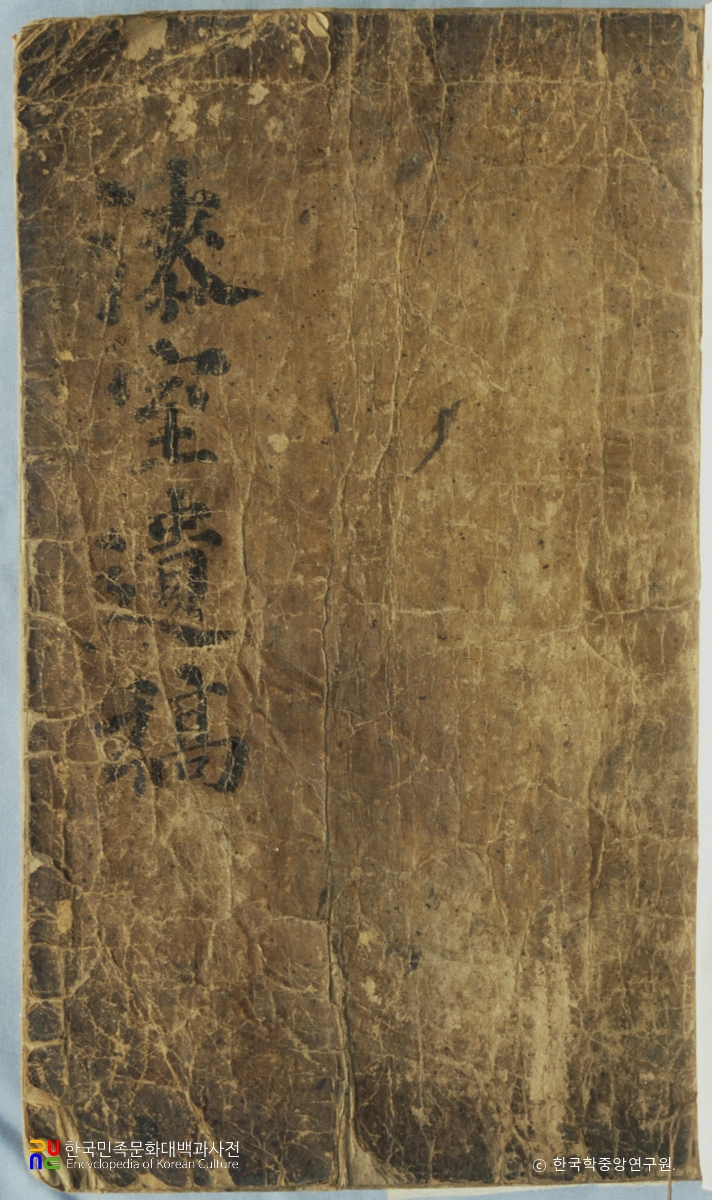 漆室遺稿
한국민족문화대백과사전
Encyclopedia of Korean Culture
© 한국학중앙연구원.